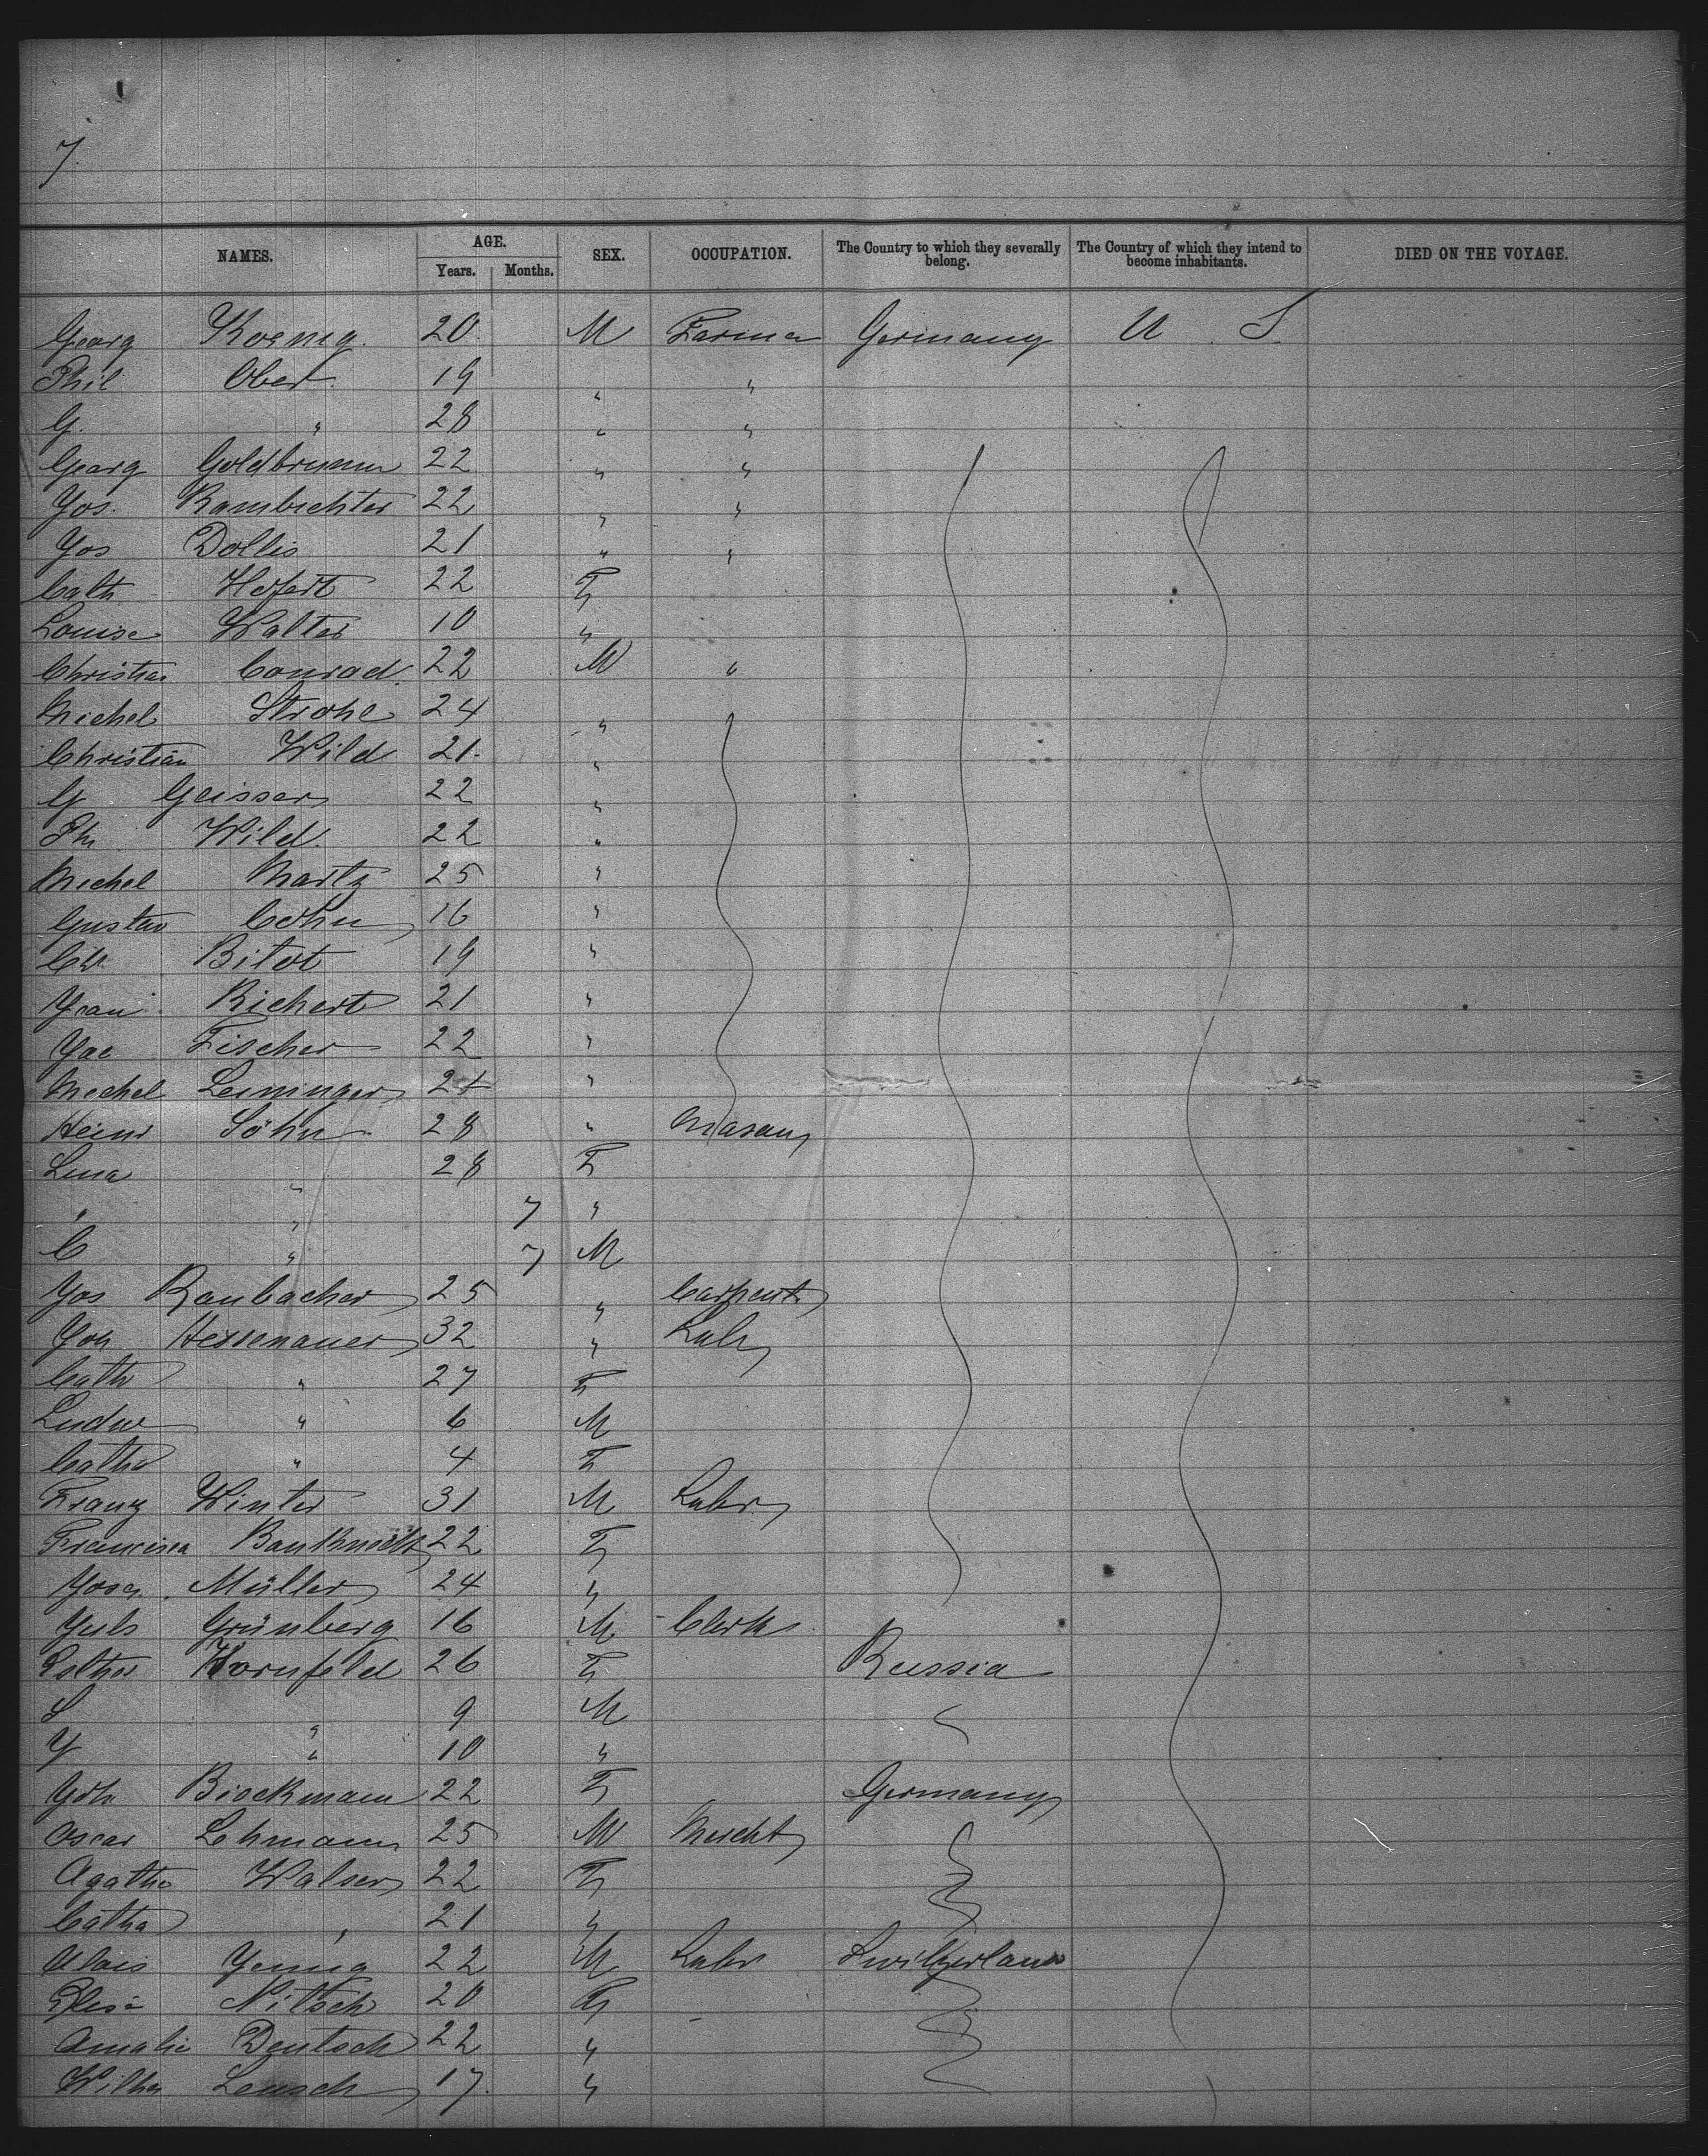 7.
NAMES. AGE. Years. Months. SEX. OCCUPATION. The Country to which they severally belong. The Country of which they intend to become inhabitants. DIED ON THE VOYAGE.
Georg Koenig. 20. M Farmer Germany U. S.
Phil Ober. 19 " "
G. " 28 " "
Georg Goldbrunner 22 " "
Jos. 22 " "
Jos Dollis 21 " "
Cath 22 F
Louise Walter 10 "
Christian Conrad. 22 M "
Michel Strohl 24 "
Christian Wild 21. "
G Geisser 22 "
Ph Wild. 22 "
Michel Martz 25 "
Gustav Cohn 16 "
Ch. Bitot 19 "
Jean Richert 21 "
Jac Fischer 22 "
Michel Leininger 24 "
Heinr Söhn 28 " Mason
Lena " 28 F
" " 7 "
C " 7 M
Jos Raubacher 25 " Carpent
Joh Hessenauer 32 " Labr
Cath " 27 F
Ludw " 6 M
Catha " 4 F
Franz Winter 31 M Labr
Francisca 22 F
Josa. Müller 24 "
Juls Grünberg 16 M Clerk
Esther Kornfeld 26 F Russia
S " 9 M
J " 10 "
Joh Brockmann 22 F Germany
Oscar Lehmann 25 M Mercht
Agatha Walser 22 F
Catha " 21 "
Alois Jenny 22 M Labr Switzerland
Elise Nitsch 20 F
Amalie Deutsch 22 "
Wilha Leusch 17. "